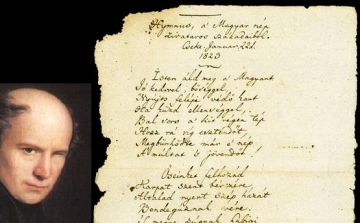 Hymnus, a' Magyar nép
zivataros századaiból.
Cseke, Januar. 22d.
1823
Isten áldd meg a' Magyart
Jó kedvvel, bőséggel,
Nyújts feléje védő kart
Ha küzd ellenséggel;
Bal sors a' kit régen tép
Hozz rá víg esztendőt,
Megbünhödte már e' nép
A' multat 's jövendőt!
Őseinket felhozád
Kárpát szent bérczére,
Általad nyert szép hazát
Bendegúznak vére.